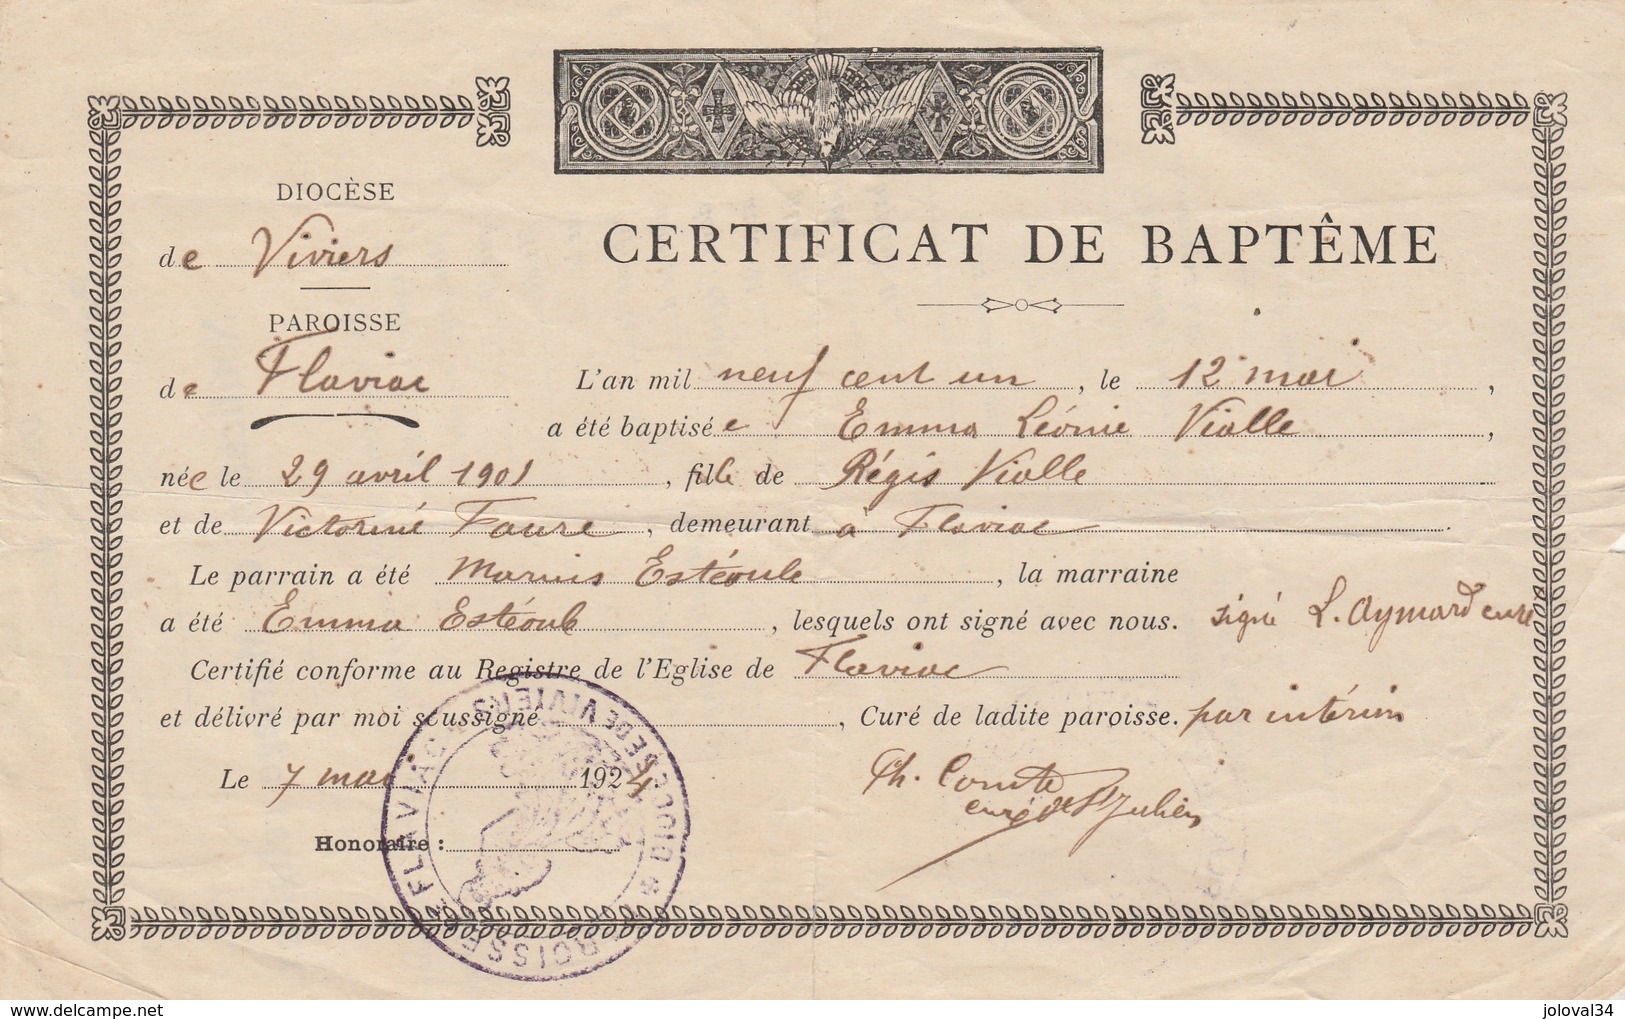 DIOCÈSE
de Viviers
PAROISSE
de Flaviac
CERTIFICAT DE BAPTÊME
L'an mil neuf cent un, le 12 mai,
a été baptisée Emma Léonie Vialle,
née le 29 avril 1901, fille de Régis Vialle
et de Victorine Faure, demeurant à Flaviac.
Le parrain a été Marius Estéoule, la marraine
a été Emma Estéoule, lesquels ont signé avec nous. signé L. Aymard curé
Certifié conforme au Registre de l'Eglise de Flaviac
et délivré par moi soussigné, Curé de ladite paroisse. par intérim
Le 7 mai 1924
Ph. Comte
curé de St Julien
Honoraire :
PAROISSE DE FLAVIAC * DIOCESE DE VIVIERS *
joloval34